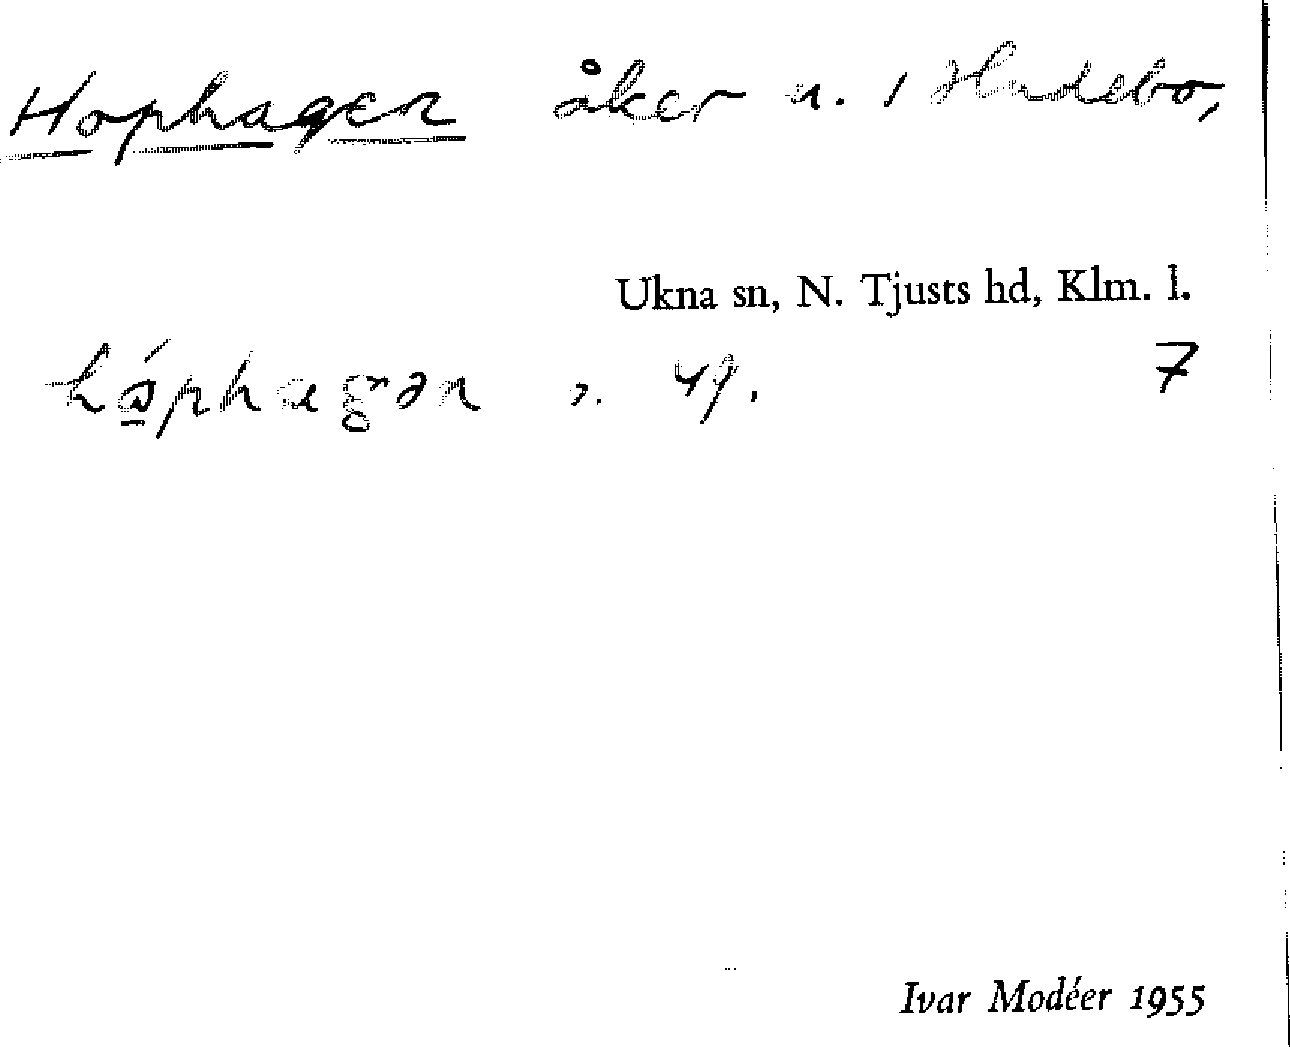 Hophagen åker n. i Hudebo,
Ukna sn, N. Tjusts hd, Klm. l.
7
Ivar Modéer 1955